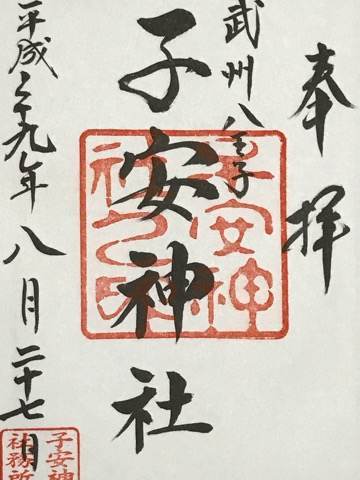 奉拝
武州八王子
子安神社
平成二十九年八月二十七日
子安神
社之印
子安神
社務所